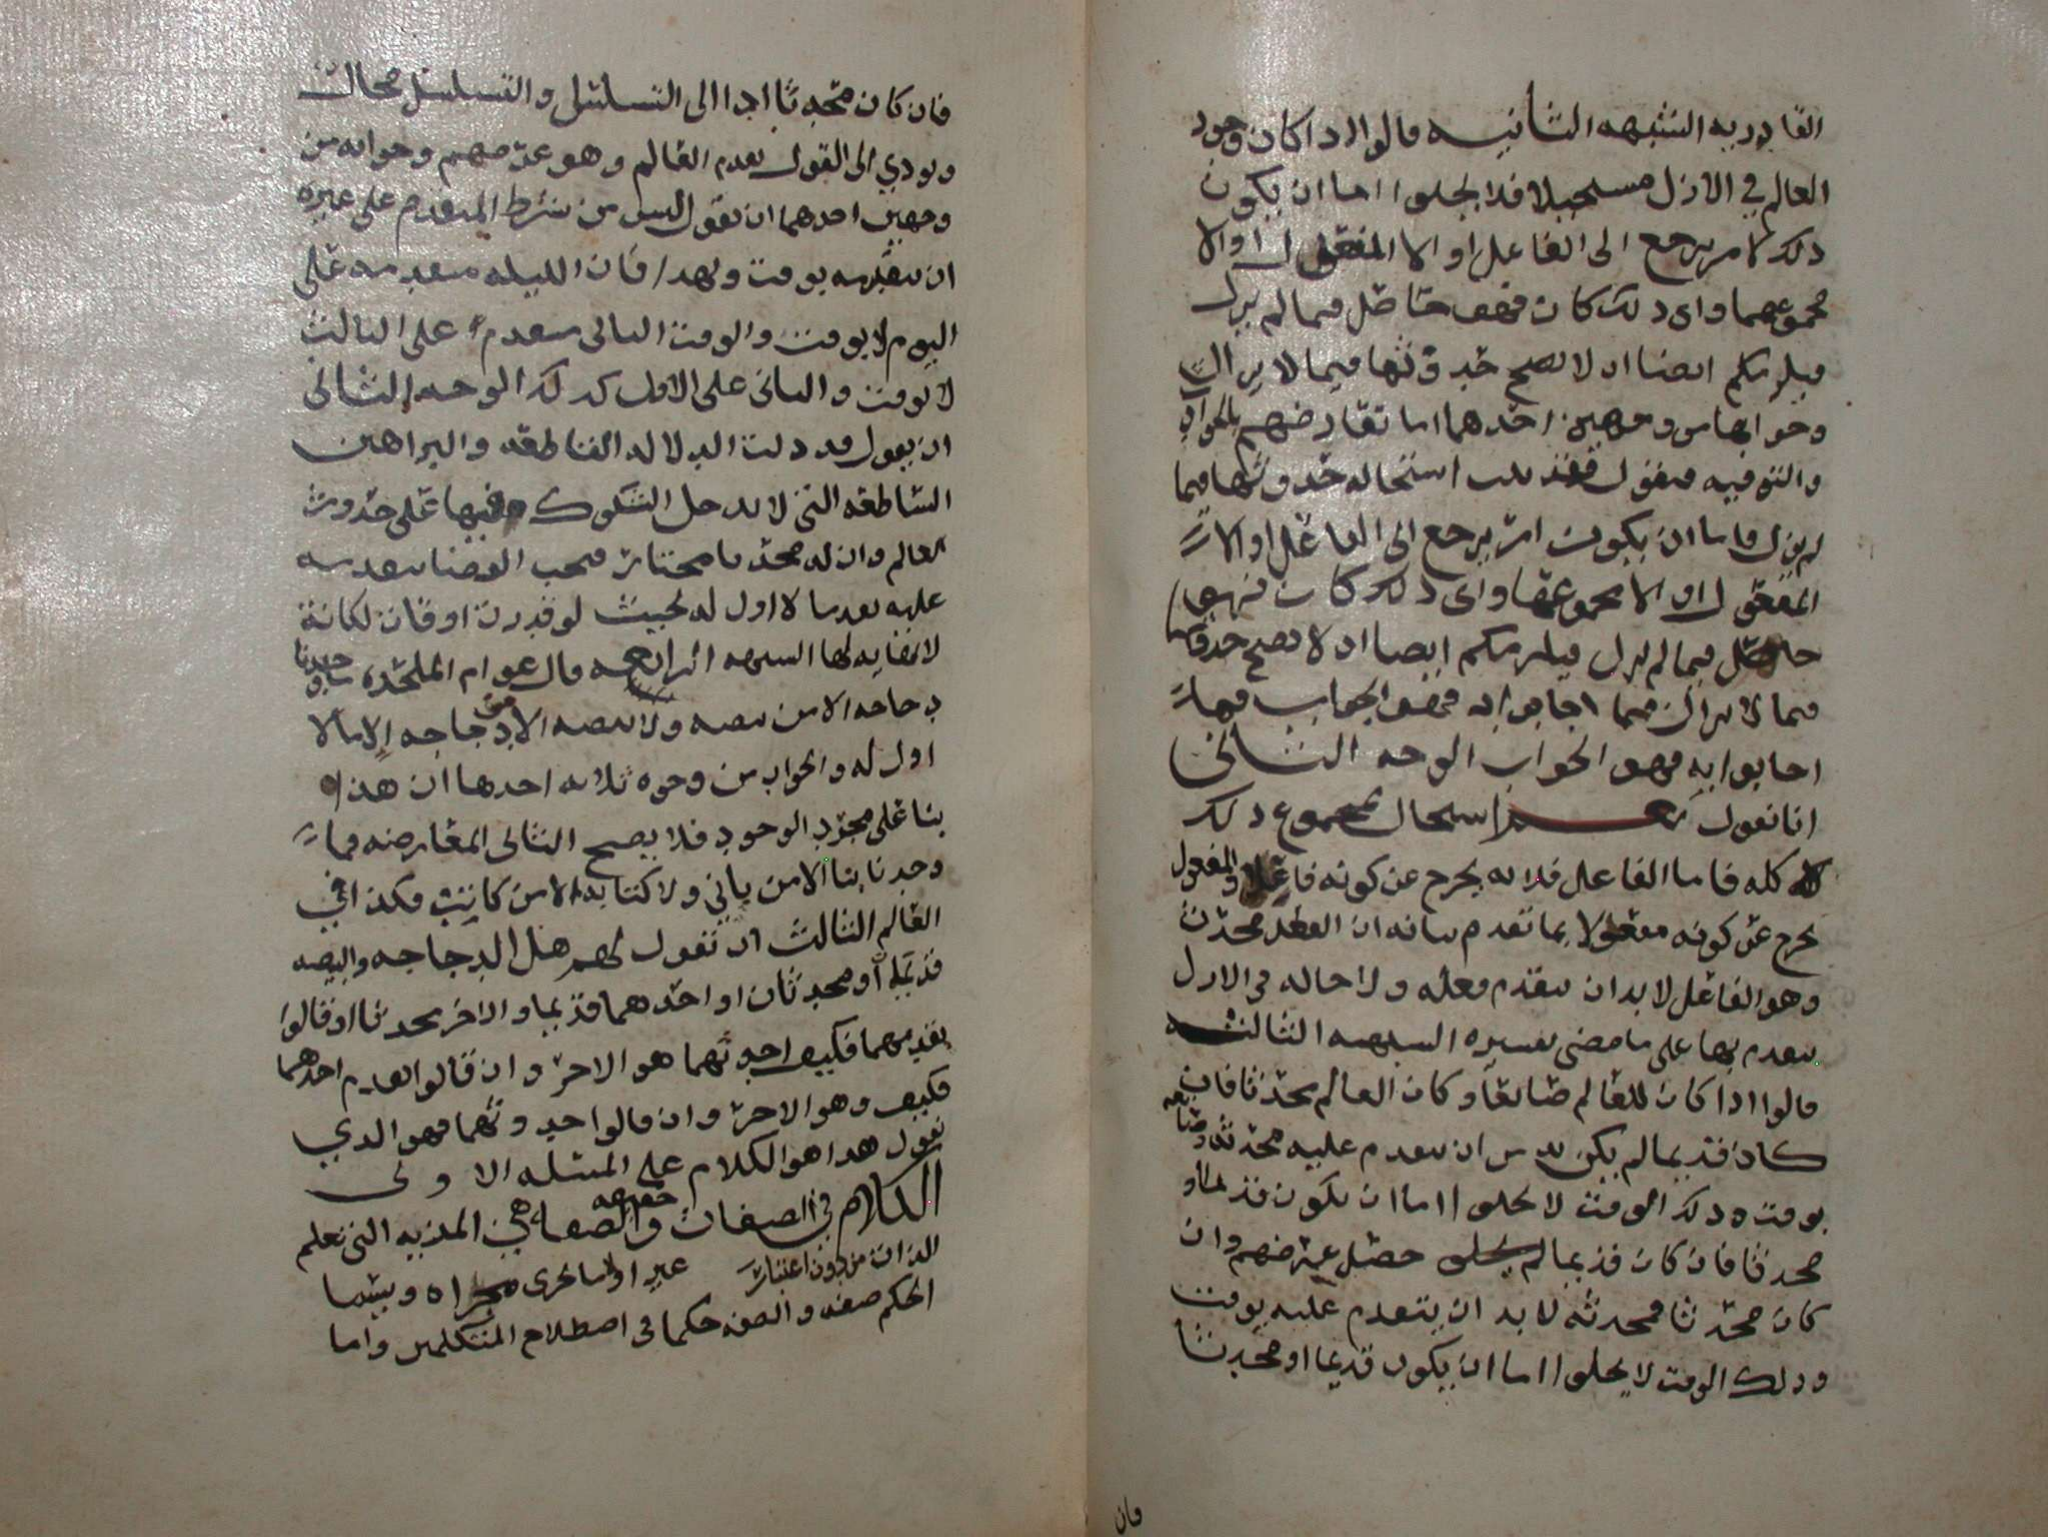 القادريه الشبهه الثانيه قالوا اذا كان وجود
العالم في الازل مستحيلا فلا يخلوا اما ان يكون
ذلك لامر يرجع الى الفاعل او الا المفعول او الا
مجموعهما واي ذلك كان فهو حاصل فيما لم يزل
فيلزمكم ايضا ان لا يصح حدوثها فيما لا يزال
وجوابها من وجهين احدهما
فنقول استحاله حدوثها فيما
لم يزل فاما ان يكون امر يرجع الى الفاعل او الا
المفعول او الا مجموعهما واي ذلك كان فهو
حاصل فيما لم يزل فيلزمكم ايضا ان لا يصح حدوثها
فيما لا يزال فبما اجابوا به فهو الجواب فبما
اجابوا به فهو الجواب الوجه الثاني
انا نقول استحال مجموع ذلك
كله فاما الفاعل فلانه يخرج عن كونه فاعلا والمفعول
يخرج عن كونه مفعولا بما تقدم بيانه ان الفعل محدث
وهو الفاعل لا بد ان يتقدم فعله ولا حاله في الازل
يتقدم بها على ما مضى تفسيره الشبهه الثالثه
قالوا اذا كان للعالم صانعا وكان العالم محدثا فان
كان قديما لم يكن بد من ان يتقدم عليه محدثه وصانعه
بوقت وذلك الوقت لا يخلوا اما ان يكون قديما او
محدثا فان كان قديما لم يخلو حصل غرضهم وان
كان محدثا فمحدثه لا بد ان يتقدم عليه بوقت
وذلك الوقت لا يخلوا اما ان يكون قديما او محدثا
فان
فان كان محدثا ادا الى التسلسل والتسلسل محال
ويودي الى القول بقدم العالم وهو غرضهم وجوابه من
وجهين احدهما ان نقول ليس من شرط المتقدم على غيره
ان يتقدمه بوقت ولهذا فان الليله متقدمه على
اليوم لا بوقت والوقت الثاني متقدم على الثالث
لا بوقت والثاني على الاول كذلك الوجه الثاني
ان نقول قد دلت الدلاله القاطعه والبراهين
الساطعه التي لا يدخل الشكوك فيها على حدوث
العالم وان له محدثا مختارا فيجب القضا بتقدمه
عليه تقدما لا اول له بحيث لو قدرت اوقات لكانت
لا نهايه لها الشبهه الرابعه قال عوام الملحده ما وجدنا
دجاجه الا من بيضه ولا بيضه الا من دجاجه الا ما لا
اول له والجواب من وجوه ثلاثه احدها ان هذا
بنا على مجرد الوجود فلا يصح الثاني المعارضه فما
وجدنا بنا الا من باني ولا كتابه الا من كاتب فكذا في
العالم الثالث ان نقول لهم هل الدجاجه والبيضه
قديمه او محدثان او احدهما قديما والاخر محدثا ان قالوا
بقدمهما فكيف احدثهما هو الاخر وان قالوا بقدم احدهما
فكيف وهو الاخر وان قالوا حدوثهما فهو الذي
نقول هذا هو الكلام على المسئله الاولى
الكلام في الصفات حقيقه والصفه هي المزيه التي تعلم
الذات من دون اعتبار غير او ما يجرى مجراه ويسما
الحكم صفه والصفه حكما في اصطلاح المتكلمين واما